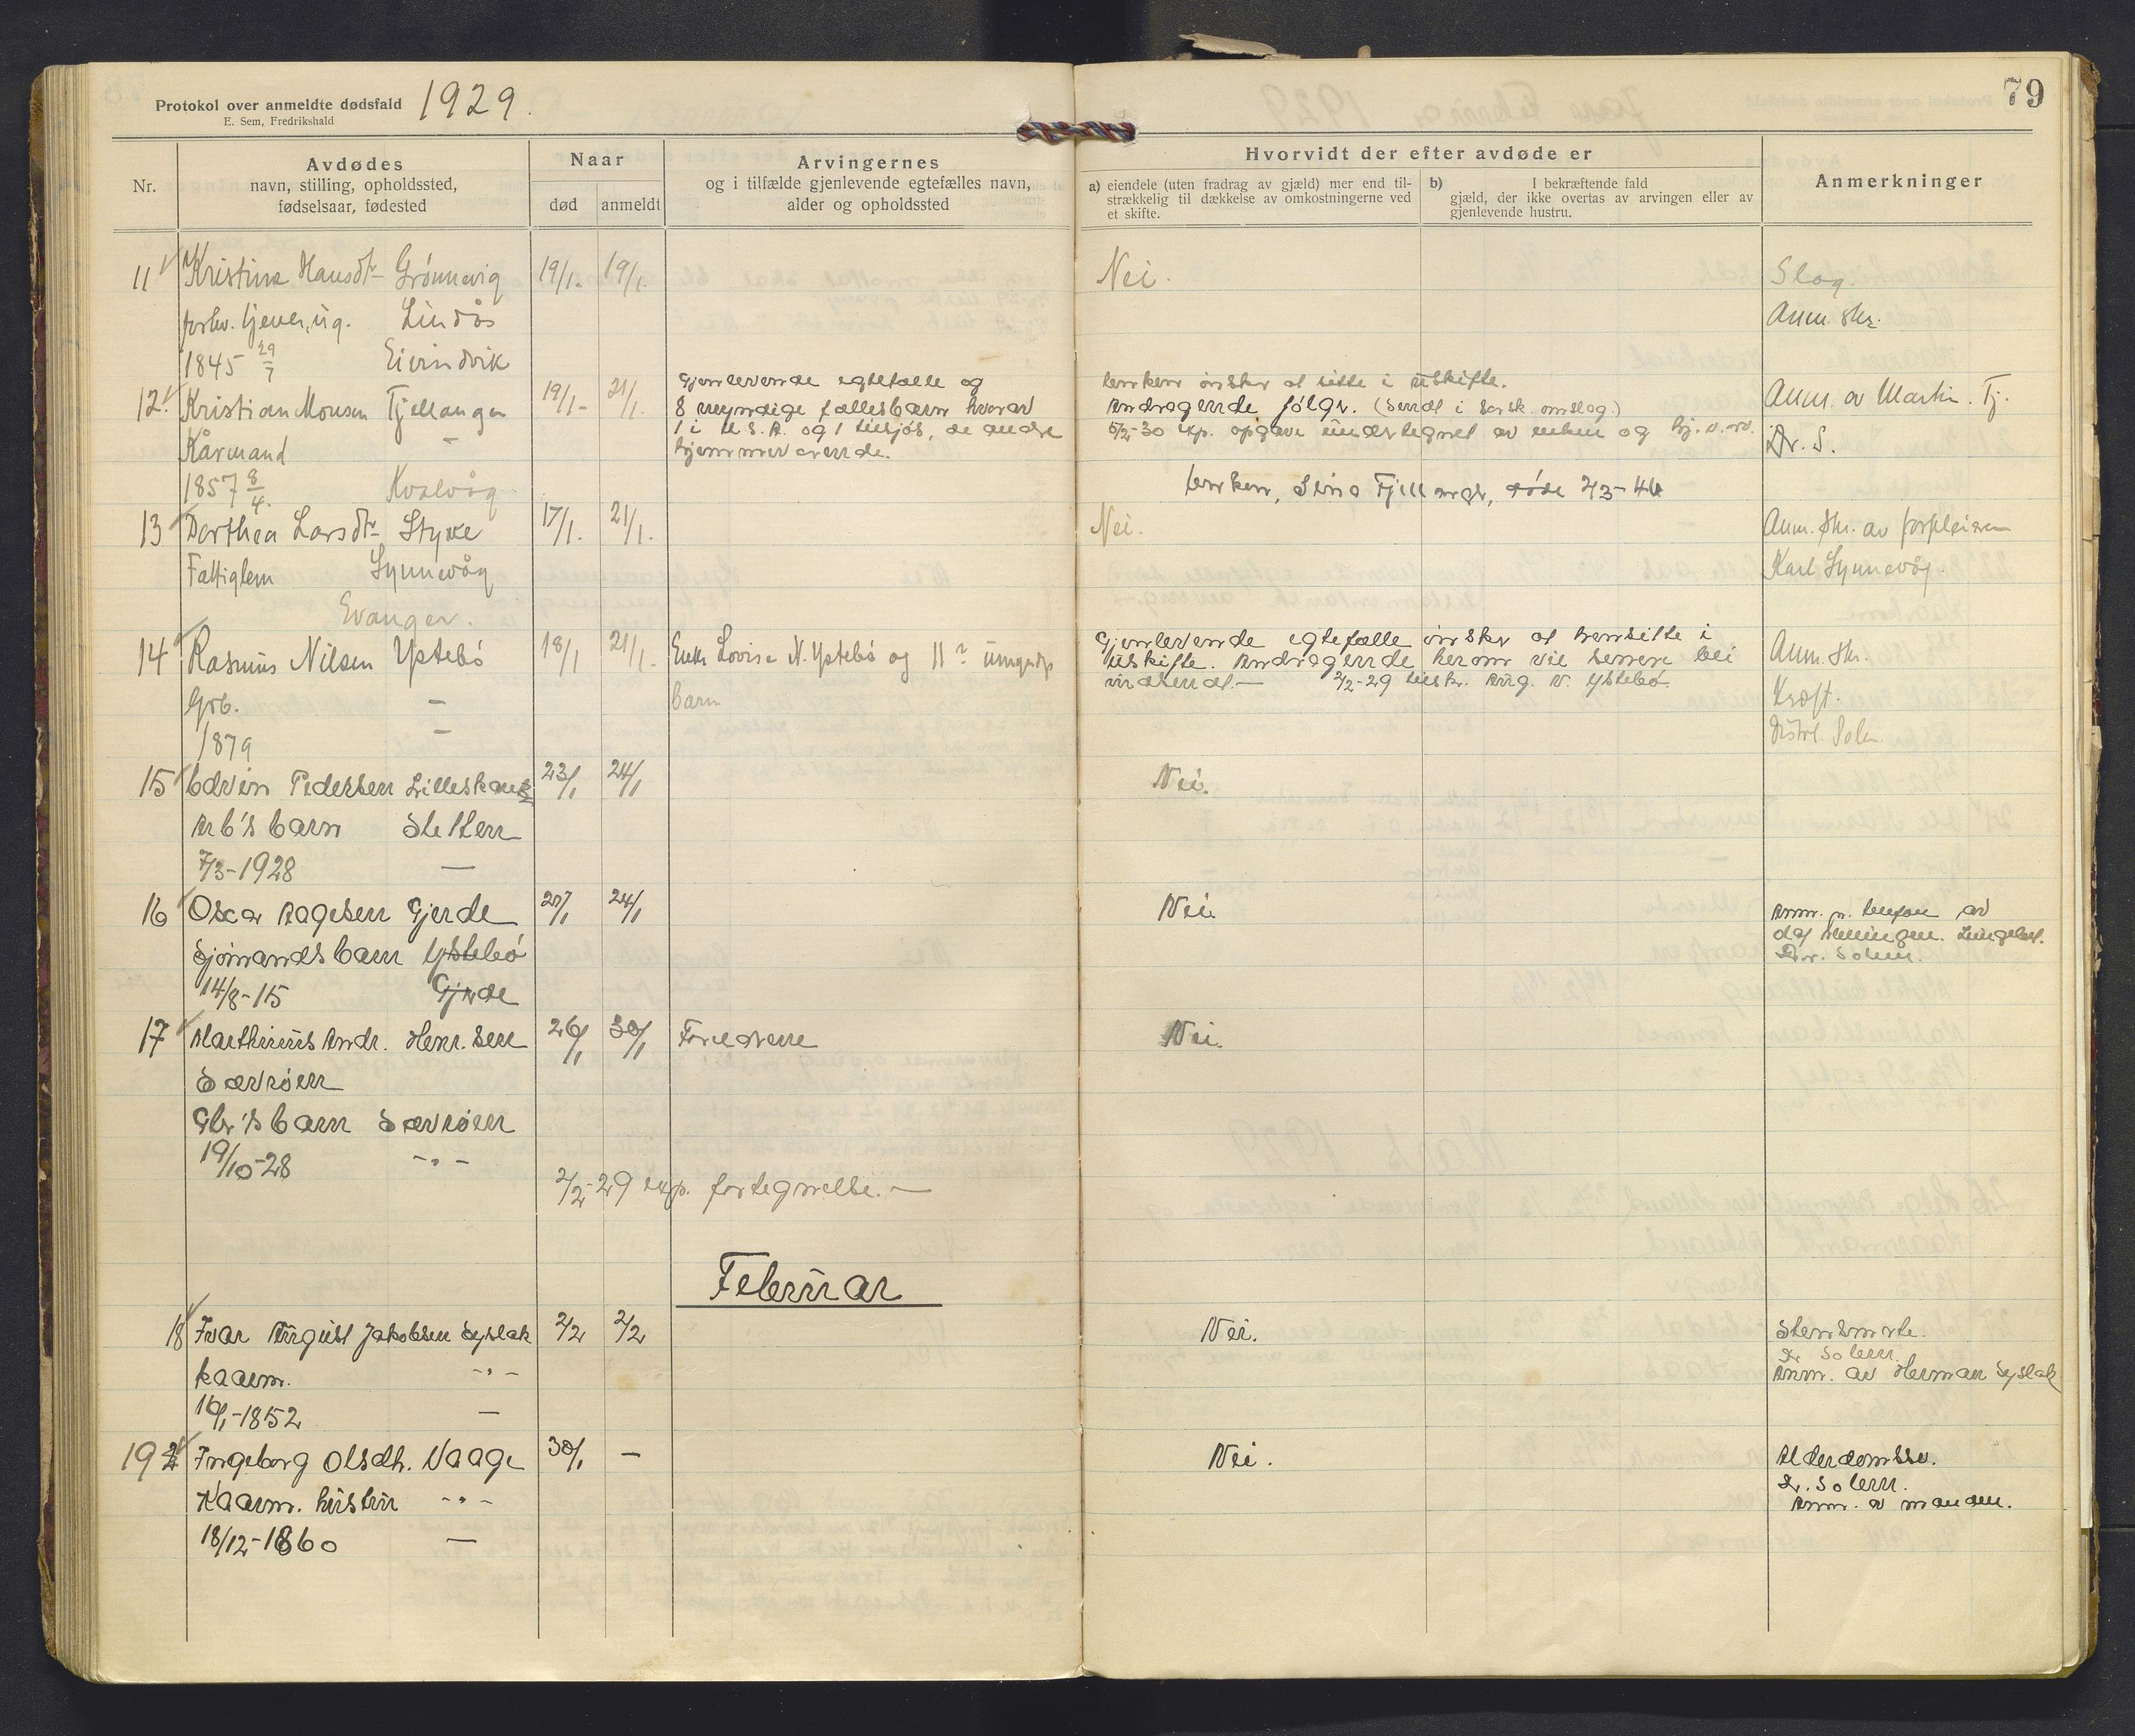 Protokol over anmeldte dødsfald 1929.
E. Sem, Fredrikshald
79
Nr.
Avdødes
navn, stilling, opholdssted,
fødselsaar, fødested
Naar
død
anmeldt
Arvingernes
og i tilfælde gjenlevende egtefælles navn,
alder og opholdssted
Hvorvidt der efter avdøde er
a) eiendele (uten fradrag av gjæld) mer end til-
strækkelig til dækkelse av omkostningerne ved
et skifte.
b) I bekræftende fald
gjæld, der ikke overtas av arvingen eller av
gjenlevende hustru.
Anmerkninger
11 Kristine Hansdtr Grønnevig 19/1. 19/1. Nei. Slag.
forhv. tjener, ug. Lindås Anm. skr.
1845 29/7 Eivindvik
12. Kristian Monsen Fjellanger 19/1- 21/1. Gjenlevende egtefælle og Enken ønsker at sitte i uskifte. Anm. av Martin. Fj.
8 myndige fællesbarn hvorav Andragende følger. (Sendt i særsk. omslag.)
Kårmand - 1 i U.S.A. og 1 tilsjøs, de andre 5/2-30 exp. opgave undertegnet av enken og Dr. S.
hjemmeværende.
1857 8/4. Kvalvåg Enken, Sina Fjellanger, døde 2/3-44
13 Dorthea Larsdtr Styve 17/1. 21/1. Nei. Anm. skr. av forpleieren
Fattiglem Synnevåg Karl Synnevåg.
Evanger.
14 Rasmus Nilsen Ystebø 18/1 21/1. Enke Lovise N. Ystebø og 11 umyndige Gjenlevende egtefælle ønsker at hensitte i Anm. skr.
uskifte. Andragende herom vil senere bli
Grb. - barn indsendt.- 2/2-29 tilskr. Aug. N. Ystebø. Kræft.
1879 - Distrl. Solem
15 Edvin Pedersen Lilleskare 23/1 24/1 Nei.
Arb's barn Sletten
7/3-1928 -
16 Oscar Aagesen Gjerde 20/1 24/1 Nei. Anm. p. telefon av
Sjømands barn Ystebø
Dr. Solem.
14/8-15 Gjerde
17 Marthinius Andr. Henr. sen 26/1 30/1 Forældrene Nei.
Sævrøen
Gbr's barn Sævrøen
19/10-28 -"-
2/2-29 exp. fortegnelse.-
Februar
18 Ivar August Jakobsen Syslak 2/2 2/2 Nei. Stensmerte.
Dr Solem.
Kaarm. -"- Anm. av Herman Syslak
16/1-1852 -
19 Ingeborg Olsdtr. Vaage 30/1 - Nei. Alderdomssv.
Dr. Solem.
Kaarm. hustru -"- Anm. av manden.
18/12-1860 -